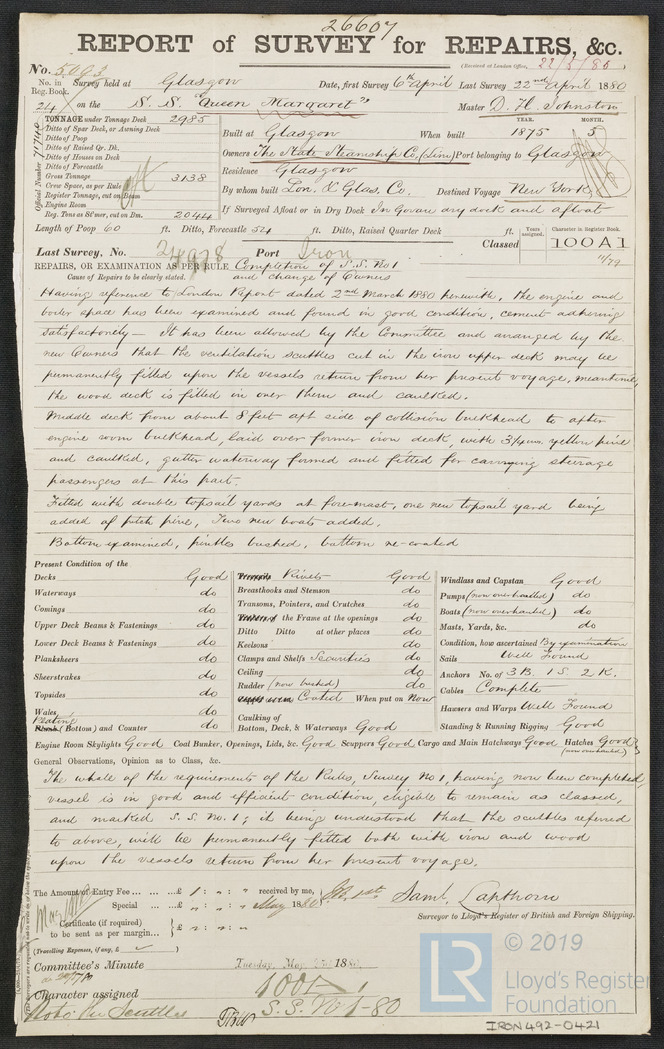 26607
REPORT of SURVEY for REPAIRS, &c.
(Received at London Office, 22/5/80.)
No. 5093
No. in Reg. Book. Survey held at Glasgow Date, first Survey 6th April Last Survey 22nd April 1880
24 on the S. S. "Queen Margaret" Master D. H. Johnston
TONNAGE under Tonnage Deck 2985
Ditto of Spar Deck, or Awning Deck
Ditto of Poop
Ditto of Raised Qr. Dk.
Ditto of Houses on Deck
Ditto of Forecastle
Gross Tonnage 3138
Crew Space, as per Rule
Register Tonnage, cut on Beam
Engine Room
Reg. Tons as St'mer, cut on Bm. 2044
Official Number
YEAR. MONTH.
Built at Glasgow When built 1875 5
Owners The State Steamship Co, (Lim) Port belonging to Glasgow
Residence Glasgow
By whom built Lon. & Glas. Co. Destined Voyage New York
If Surveyed Afloat or in Dry Dock In Govan dry dock and afloat
Length of Poop 60 ft. Ditto, Forecastle 54 ft. Ditto, Raised Quarter Deck ft.
Years assigned. Character in Register Book.
Last Survey, No. Port Iron Classed 100A1
11/79
REPAIRS, OR EXAMINATION AS PER RULE Completion of S.S. No 1
Cause of Repairs to be clearly stated. and change of Owners
Having reference to London Report dated 2nd March 1880 herewith, the engine and
boiler space has been examined and found in good condition, cement adhering
satisfactorely — It has been allowed by the Committee and arranged by the
new Owners that the ventilation scuttles cut in the iron upper deck may be
permanently fitted upon the vessels return from her present voyage, meantime,
the wood deck is fitted in over them and caulked.
Middle deck from about 8 feet aft side of collision bulkhead to after
engine room bulkhead, laid over former iron deck, with 3¼ ins. yellow pine
and caulked, gutter waterway formed and fitted for carrying steerage
passengers at this part.
Fitted with double topsail yards at fore-mast, one new topsail yard being
added of pitch pine, Two new boats added.
Bottom examined, pintles bushed, bottom re-coated
Present Condition of the
Decks Good
Waterways do
Comings do
Upper Deck Beams & Fastenings do
Lower Deck Beams & Fastenings do
Planksheers do
Sheerstrakes do
Topsides do
Wales do
Plating
(Bottom) and Counter do
Rivets Good
Breasthooks and Stemson do
Transoms, Pointers, and Crutches do
the Frame at the openings do
Ditto Ditto at other places do
Keelsons do
Clamps and Shelfs Securities do
Ceiling do
Rudder (now bushed) do
Coated When put on Now
Caulking of
Bottom, Deck, & Waterways Good
Windlass and Capstan Good
Pumps (now overhaulled) do
Boats (now overhauled) do
Masts, Yards, &c. do
Condition, how ascertained By examination
Sails Well Found
Anchors No. of 3 B. 1 S. 2 K.
Cables Complete
Hawsers and Warps Well Found
Standing & Running Rigging Good
Engine Room Skylights Good Coal Bunker, Openings, Lids, &c. Good Scuppers Good Cargo and Main Hatchways Good Hatches Good
(now overhauled)
General Observations, Opinion as to Class, &c.
The whole of the requirements of the Rules, Survey No 1, having now been completed,
vessel is in good and efficient condition, eligible to remain as classed,
and marked S.S. No. 1; it being understood that the scuttles referred
to above, will be permanently fitted both with iron and wood
upon the vessels return from her present voyage.
The Amount of Entry Fee ... ... ...£ 1 : " : " received by me,
Special ... ...£ " : " : " May 1880
Certificate (if required) £ " : " : "
to be sent as per margin...
(Travelling Expenses, if any, £ )
Saml. Lapthorn
Surveyor to Lloyd's Register of British and Foreign Shipping.
Committee's Minute Tuesday, May 188
Character assigned 100A1
S.S. No 1-80
LR
© 2019
Lloyd's Register
Foundation
IRON492-0421